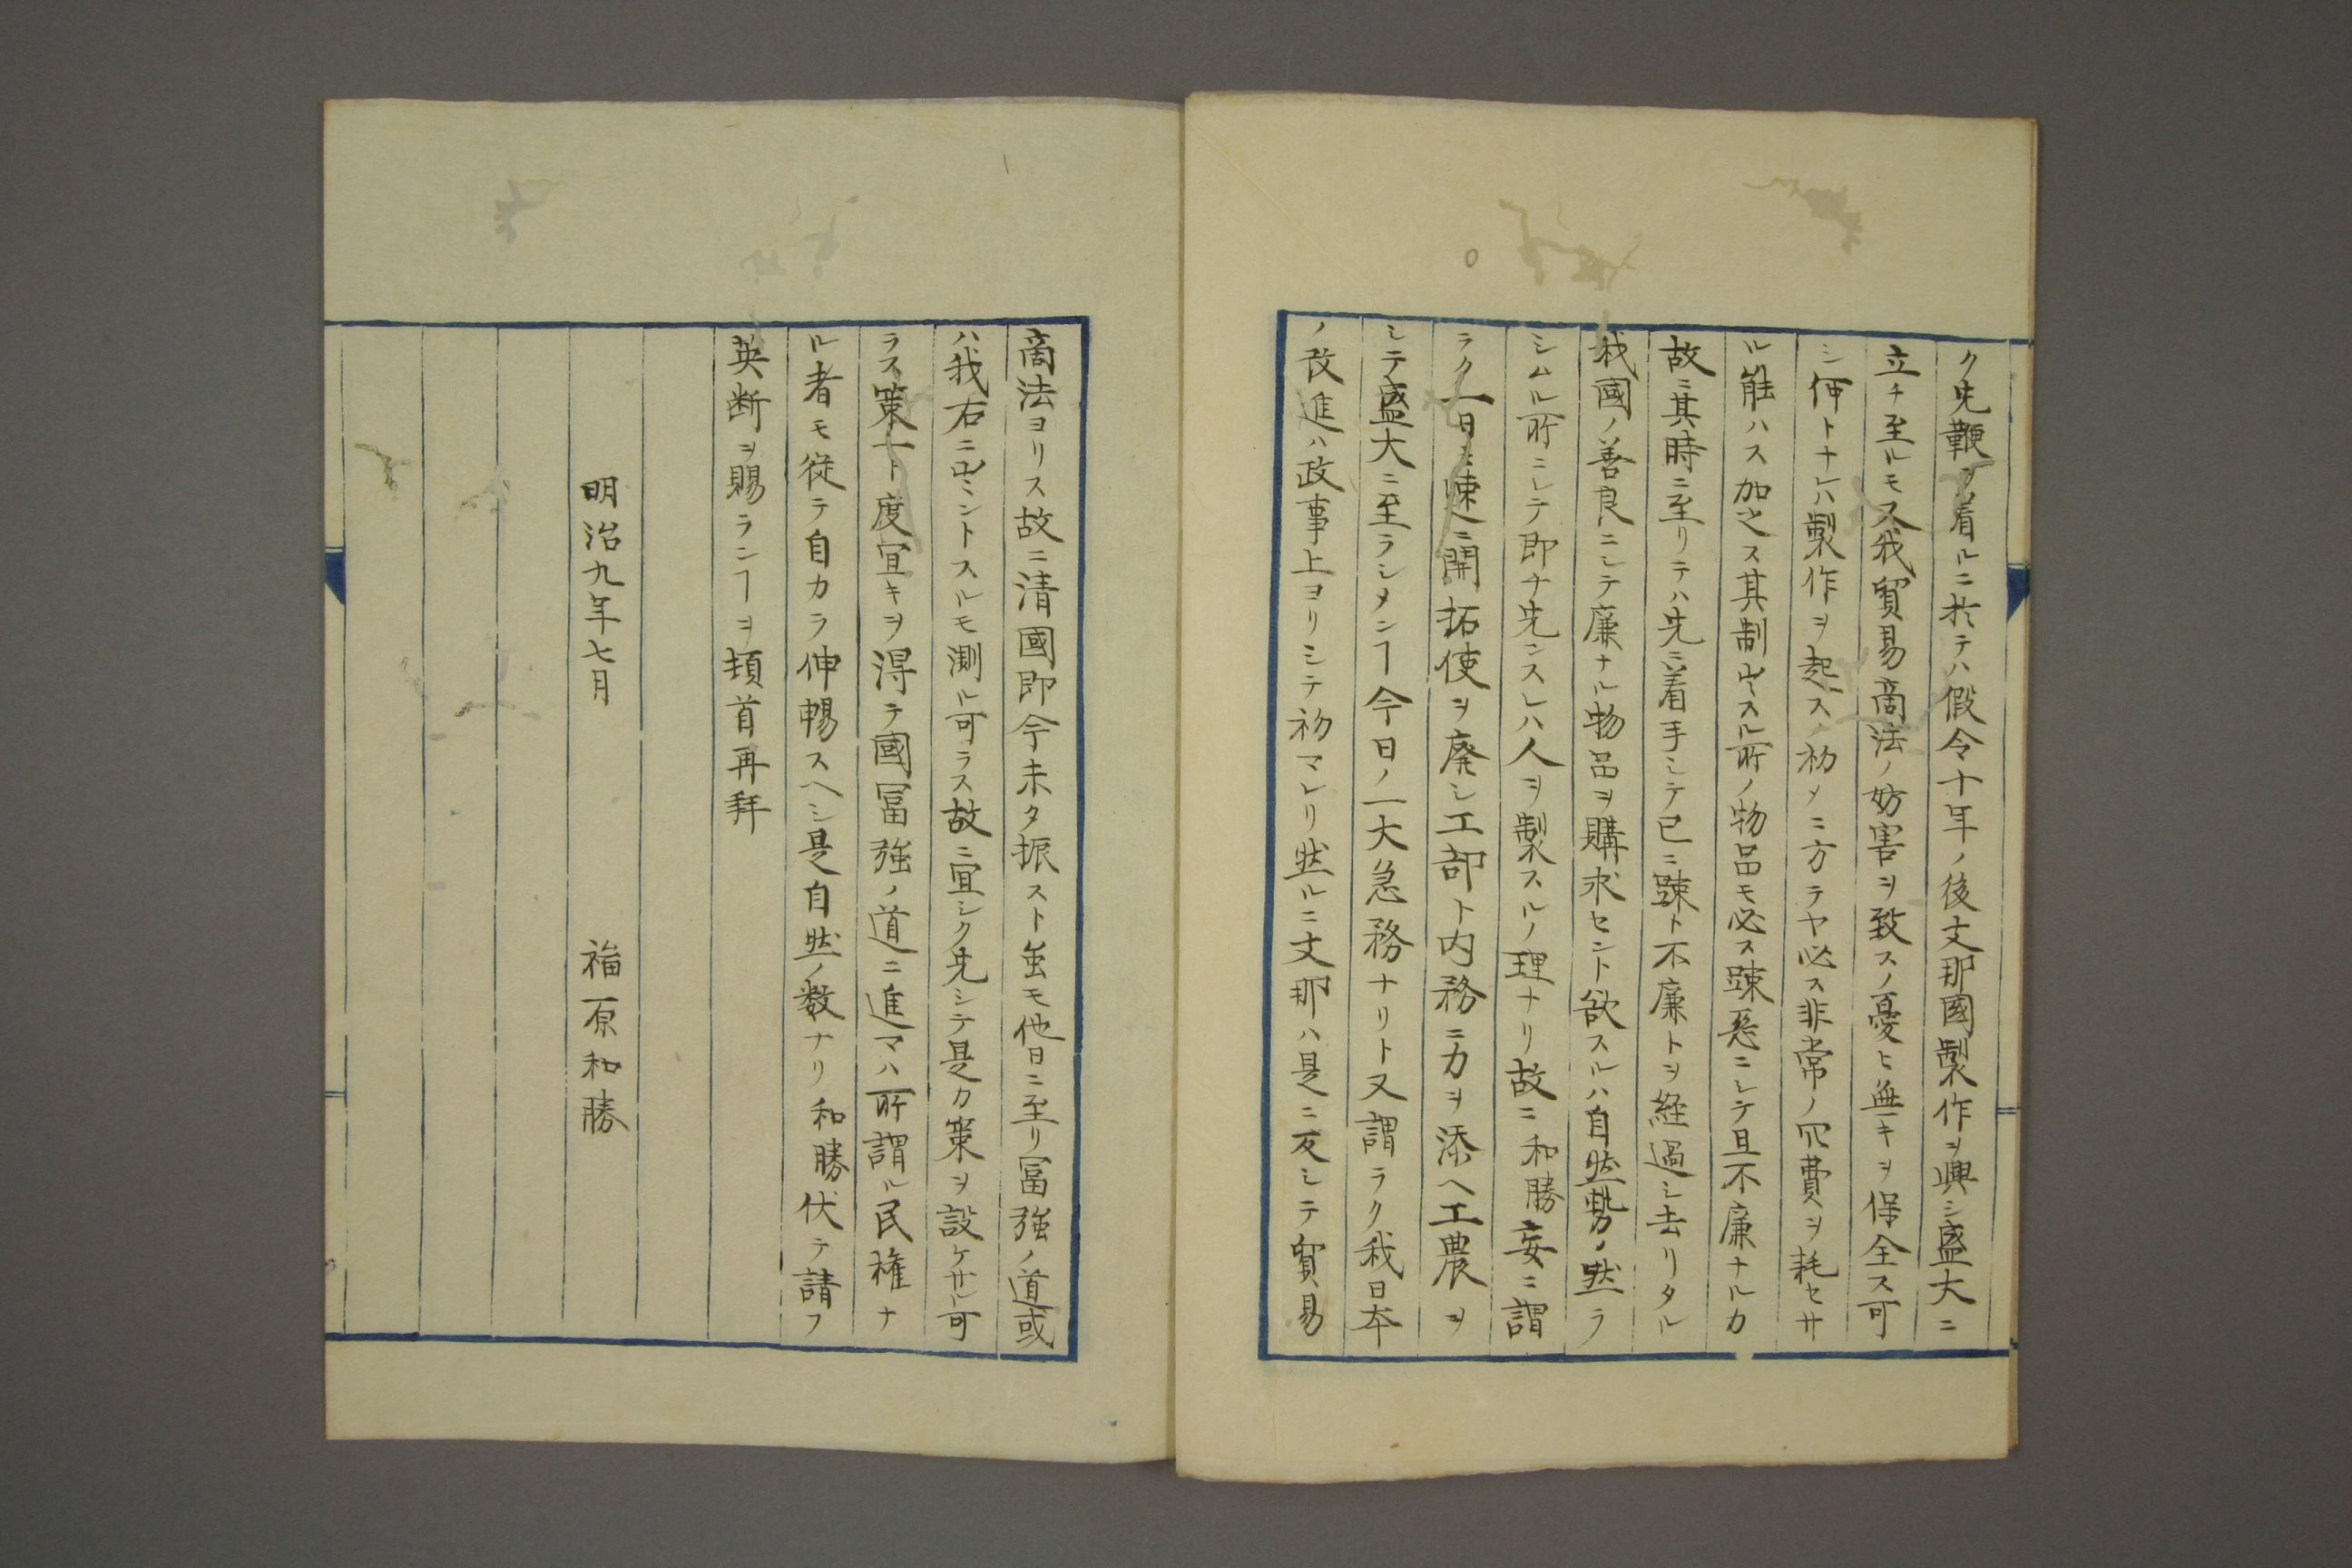 ク先鞭ヲ着ルニ於テハ假令十年ノ後支那國製作ヲ興シ盛大ニ
立チ至ルモス我貿易商法ノ妨害ヲ致スノ憂ヒ無キヲ保全ス可
シ何トナレハ製作ヲ起スノ初メニ方テヤ必ス非常ノ冗費ヲ耗セサ
ル能ハス加之ス其制出スル所ノ物品モ必ス踈悪ニシテ且不廉ナルカ
故ニ其時ニ至リテハ先ニ着手シテ已ニ踈ト不廉トヲ経過シ去リタル
我國ノ善良ニシテ廉ナル物品ヲ購求セント欲スルハ自然勢ノ然ラ
シムル所ニシテ即チ先ンスレハ人ヲ製スルノ理ナリ故ニ和勝妄ニ謂
ラク一日モ速ニ開拓使ヲ廃シ工部ト内務ニ力ヲ添ヘ工農ヲ
シテ盛大ニ至ラシメンヿ今日ノ一大急務ナリト又謂ラク我日本
ノ改進ハ政事上ヨリシテ初マレリ然ルニ支那ハ是ニ反シテ貿易
商法ヨリス故ニ清國即今未タ振スト虽モ他日ニ至リ冨強ノ道或
ハ我右ニ出ミントスルモ測ル可ラス故ニ宜シク先シテ是カ策ヲ設ケサル可
ラス策一ト度宜キヲ得テ國冨強ノ道ニ進マハ所謂ル民権ナ
ル者モ従テ自カラ伸暢スヘシ是自然ノ数ナリ和勝伏テ請フ
英断ヲ賜ランヿヲ頓首再拜
明治九年七月
福原和勝